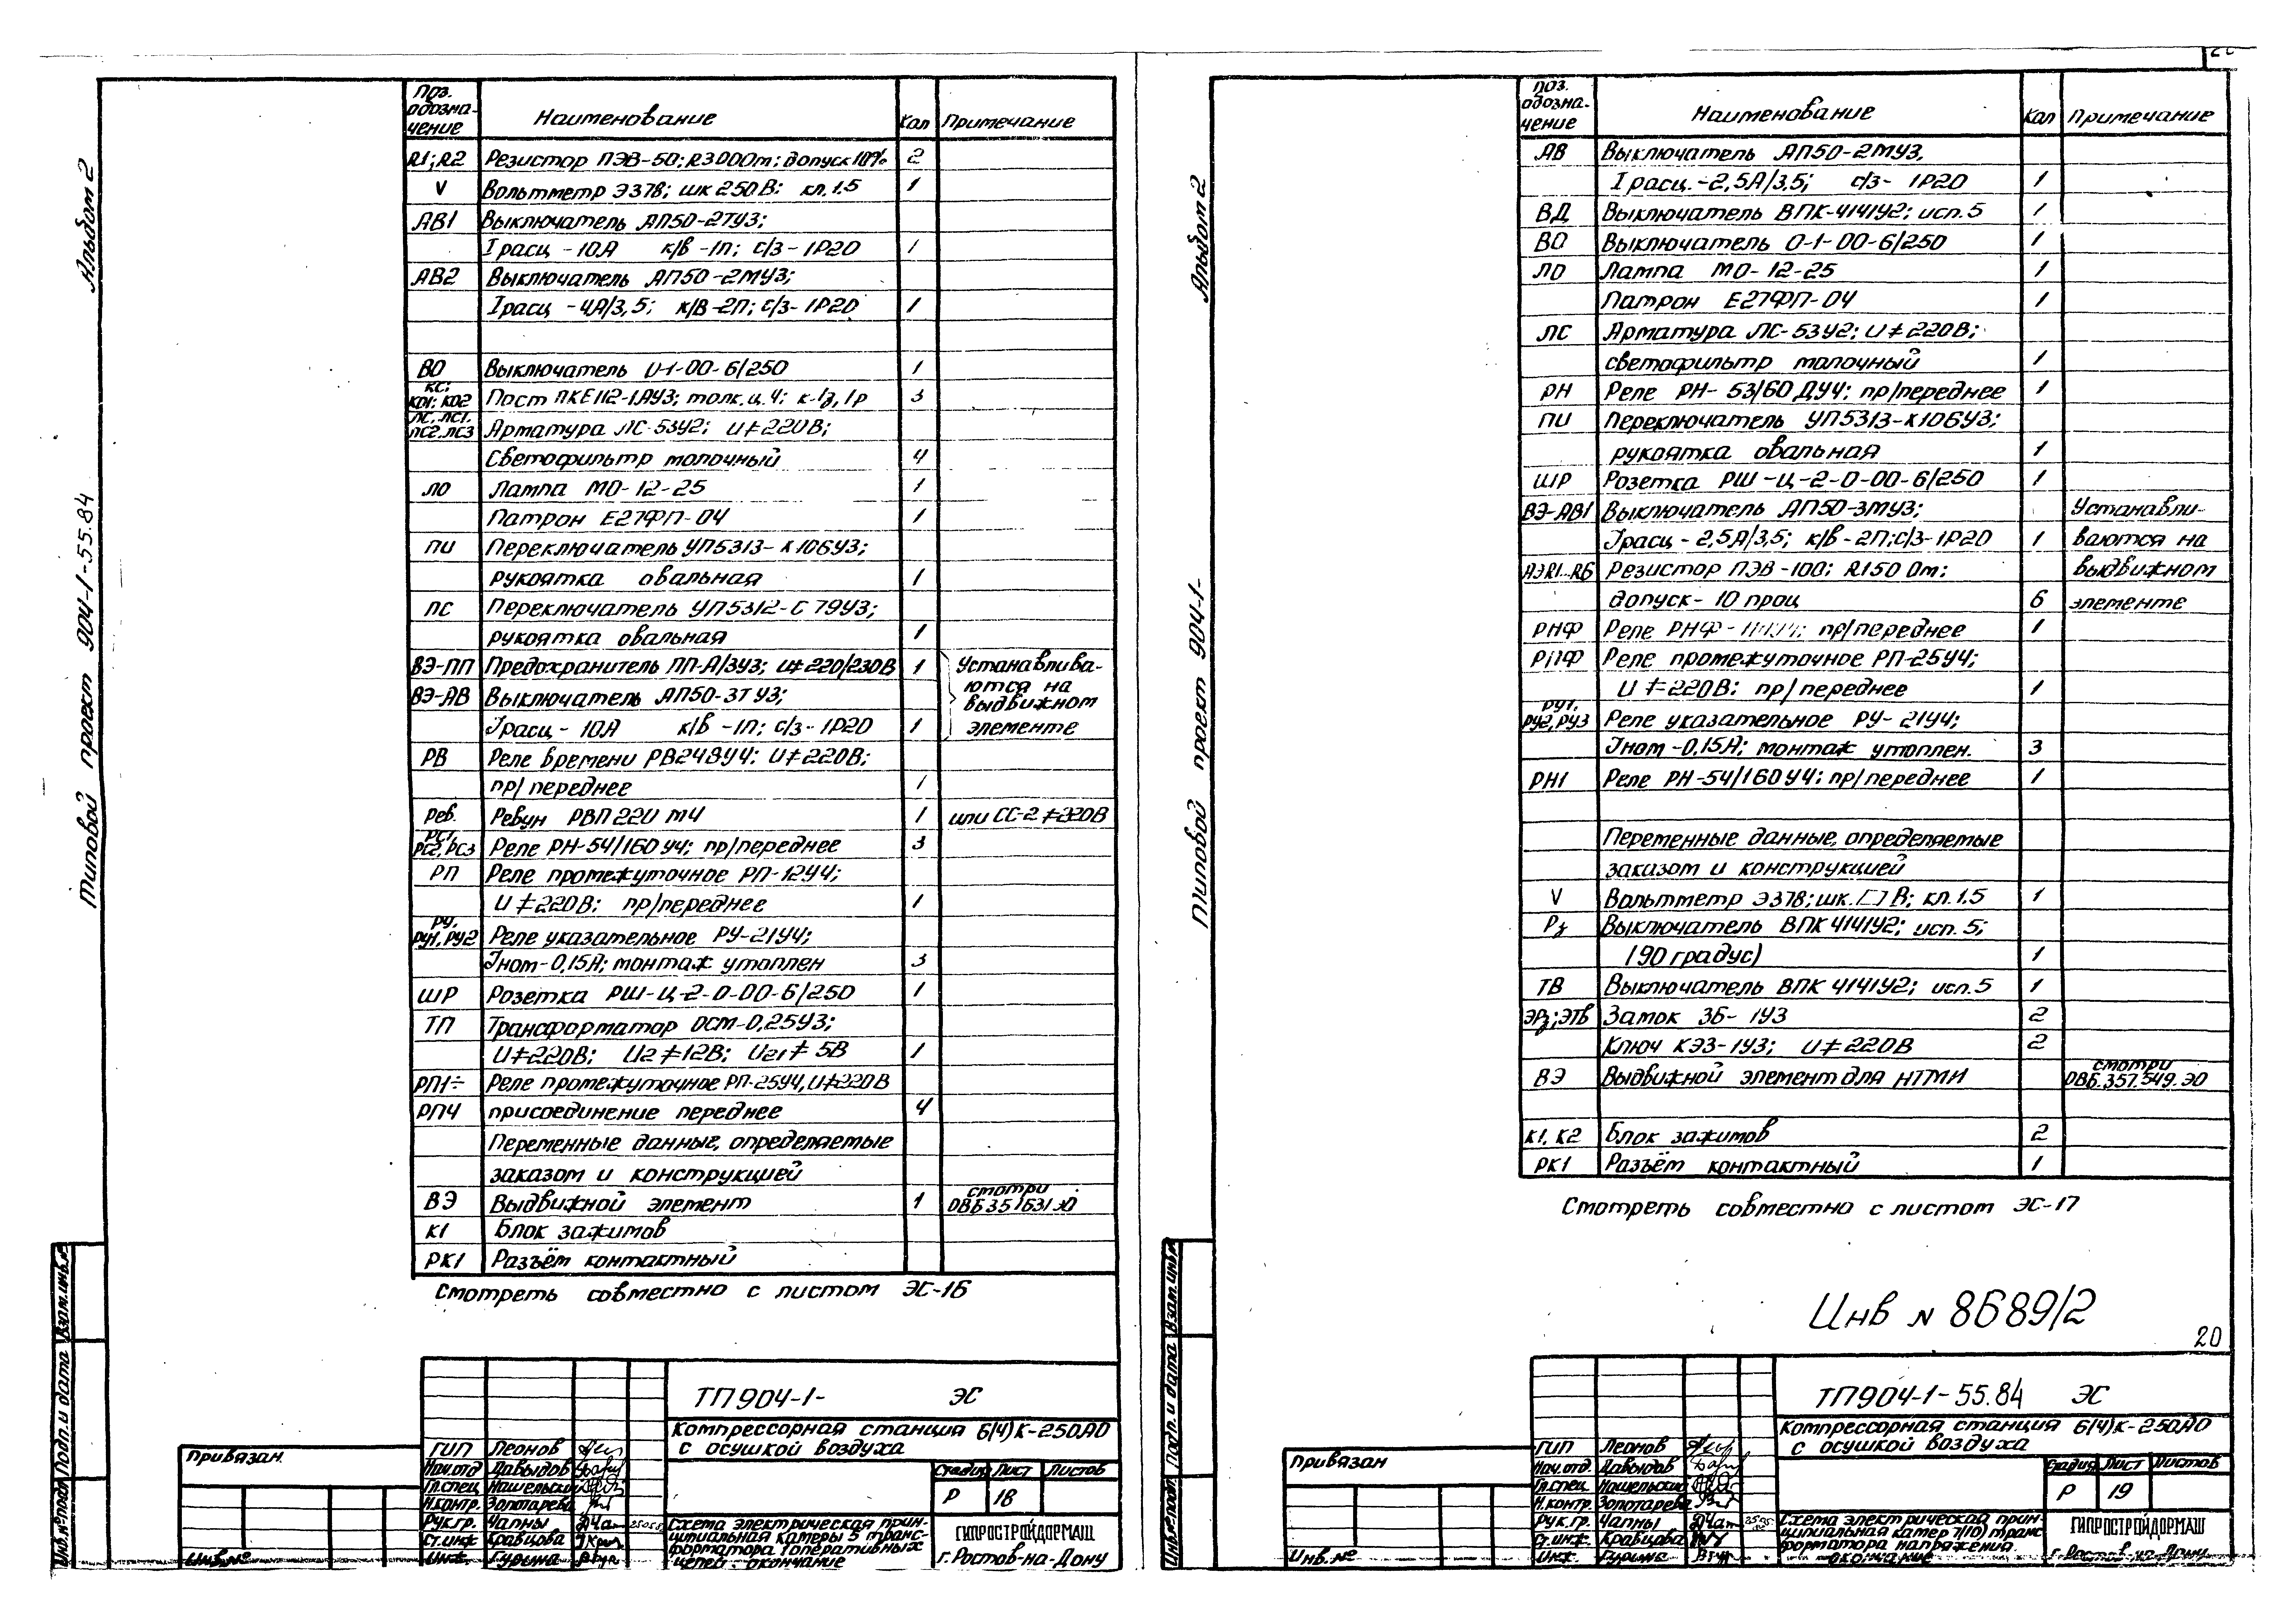 Альбом 2
Типовой проект 904-1-55.84
Поз. обозначение Наименование Кол Примечание
R1;R2 Резистор ПЭВ-50; R300Ом; допуск 10% 2
V Вольтметр Э378; шк 250В; кл. 1.5 1
АВ1 Выключатель АП50-2ТУ3;
Iрасц - 10А к/в - 1п; с/з - IP20 1
АВ2 Выключатель АП50-2МУ3;
Iрасц - 4А/3,5; к/В - 2П; с/з - IP20 1
ВО Выключатель 0-1-00-6/250 1
КС; КО1; КО2 Пост ПКЕ112-1АУ3; толк. ц. 4; к-1з, 1р 3
ЛС, ЛС1, ЛС2, ЛС3 Арматура ЛС-53У2; U≠220В;
Светофильтр молочный 4
ЛО Лампа МО-12-25 1
Патрон Е27ФП-04 1
ПИ Переключатель УП5313-К106У3;
рукоятка овальная 1
ПС Переключатель УП5312-С79У3;
рукоятка овальная 1
ВЭ-ПП Предохранитель ПП-А/3У3; U≠220/230В 1 Устанавлива-
ются на
ВЭ-АВ Выключатель АП50-3ТУ3; выдвижном
Iрасц - 10А к/в - 1п; с/з - IP20 1 элементе
РВ Реле времени РВ248У4; U≠220В;
пр/переднее 1
Рев. Ревун РВП220М4 1 или СС-2≠220В
РС1, РС2, РС3 Реле РН-54/160У4; пр/переднее 3
РП Реле промежуточное РП-12У4;
U≠220В; пр/переднее 1
РУ, РУ1, РУ2 Реле указательное РУ-21У4;
Iном-0,15А; монтаж утоплен 3
ШР Розетка РШ-Ц-2-0-00-6/250 1
ТП Трансформатор ОСМ-0,25У3;
U≠220В; U2≠12В; U21≠5В 1
РП1÷ Реле промежуточное РП-25У4, U≠220В
РП4 присоединение переднее 4
Переменные данные, определяемые
заказом и конструкцией
ВЭ Выдвижной элемент 1 смотри
К1 Блок зажимов
РК1 Разъём контактный
Смотреть совместно с листом ЭС-16
Взам.инв.№
Подп. и дата
Инв.№ подл
Привязан
Инв.№
ТП904-1- ЭС
Компрессорная станция 6(4)К-250АО
с осушкой воздуха
ГИП Леонов
Нач.отд Давыдов
Гл.спец Нашельский
Н.контр. Золотарева
Рук.гр. Чапны
Ст.инж Кравцова
Инж. Гурина
Стадия Лист Листов
Р 18
Схема электрическая прин-
ципиальная камеры 5 транс-
форматора (оперативных
цепей). окончание
ГИПРОСТРОЙДОРМАШ
г.Ростов-на-Дону
Альбом 2
Типовой проект 904-1-
Поз. обозначение Наименование Кол Примечание
АВ Выключатель АП50-2МУ3,
Iрасц.-2,5А/3,5; с/з - IP20 1
ВД Выключатель ВПК-4141У2; исп. 5 1
ВО Выключатель 0-1-00-6/250 1
ЛО Лампа МО-12-25 1
Патрон Е27ФП-04 1
ЛС Арматура ЛС-53У2; U≠220В;
светофильтр молочный 1
РН Реле РН-53/60ДУ4; пр/переднее 1
ПИ Переключатель УП5313-К106У3;
рукоятка овальная 1
ШР Розетка РШ-Ц-2-0-00-6/250 1
ВЭ-АВ1 Выключатель АП50-3МУ3; Устанавли-
Iрасц - 2,5А/3,5; к/в - 2П; с/з - IP20 1 ваются на
Резистор ПЭВ-100; R150 Ом; выдвижном
допуск - 10 проц 6 элементе
РНФ Реле РНФ- пр/переднее 1
РПФ Реле промежуточное РП-25У4;
U≠220В; пр/переднее 1
РУ1, РУ2, РУ3 Реле указательное РУ-21У4;
Iном-0,15А; монтаж утоплен. 3
РН1 Реле РН-54/160У4; пр/переднее 1
Переменные данные, определяемые
заказом и конструкцией
V Вольтметр Э378; шк. [ ] В; кл. 1.5 1
Рз Выключатель ВПК 4141У2; исп. 5;
(90 градус) 1
ТВ Выключатель ВПК 4141У2; исп. 5 1
ЭРз; ЭТВ Замок ЗБ-1У3 2
Ключ КЭЗ-1У3; U≠220В 2
ВЭ Выдвижной элемент для НТМИ смотри ОВБ.357.549.ЭО
К1, К2 Блок зажимов 2
РК1 Разъём контактный 1
Смотреть совместно с листом ЭС-17
Инв № 8689/2
20
Взам.инв.№
Подп. и дата
Инв.№ подл.
Привязан
Инв.№
ТП904-1-55.84 ЭС
Компрессорная станция 6(4)К-250АО
с осушкой воздуха
ГИП Леонов
Нач.отд. Давыдов
Гл.спец Нашельский
Н.контр. Золотарева
Рук.гр. Чапны
Ст.инж Кравцова
Инж. Гурина
Стадия Лист Листов
Р 19
Схема электрическая прин-
ципиальная камер 7(10) транс
форматора напряжения.
окончание
ГИПРОСТРОЙДОРМАШ
г.Ростов-на-Дону